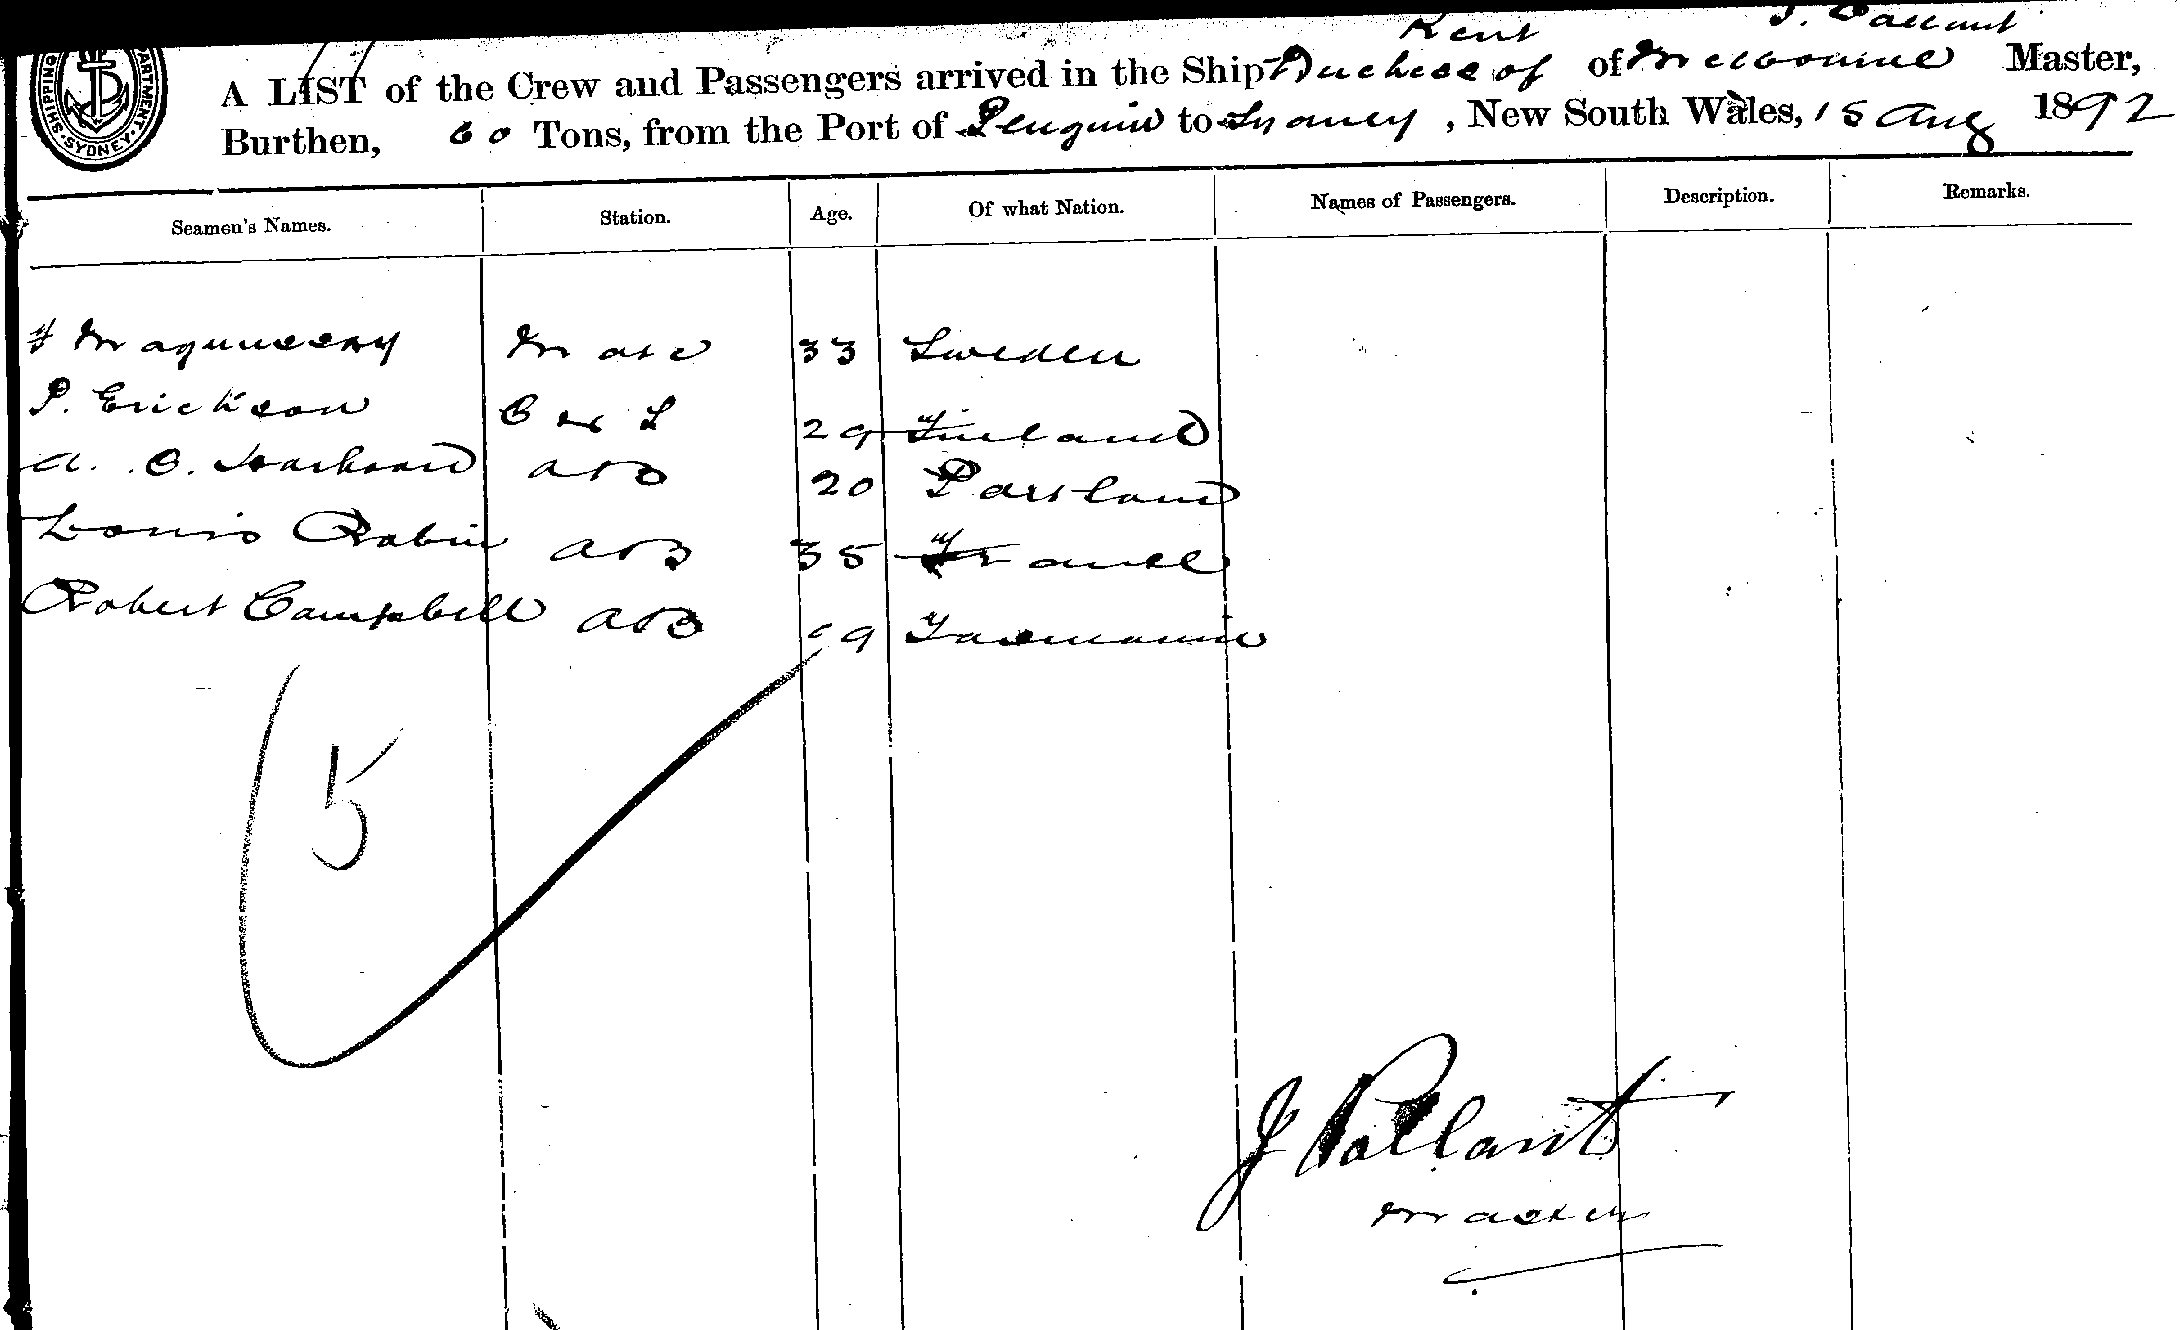 SHIPPING DEPARTMENT SYDNEY
Kent J. Pallant
A LIST of the Crew and Passengers arrived in the Ship Duchess of of Melbourne Master,
Burthen, 60 Tons, from the Port of Penguin to Sydney, New South Wales, 15 Aug 1892
Seamen's Names. Station. Age. Of what Nation. Names of Passengers. Description. Remarks.
Mate 33 Sweden
P. Erickson 29 Finland
A. C. 20
Louis Robin AB 35 France
Robert Campbell AB Tasmania
5
J Pallant
Master